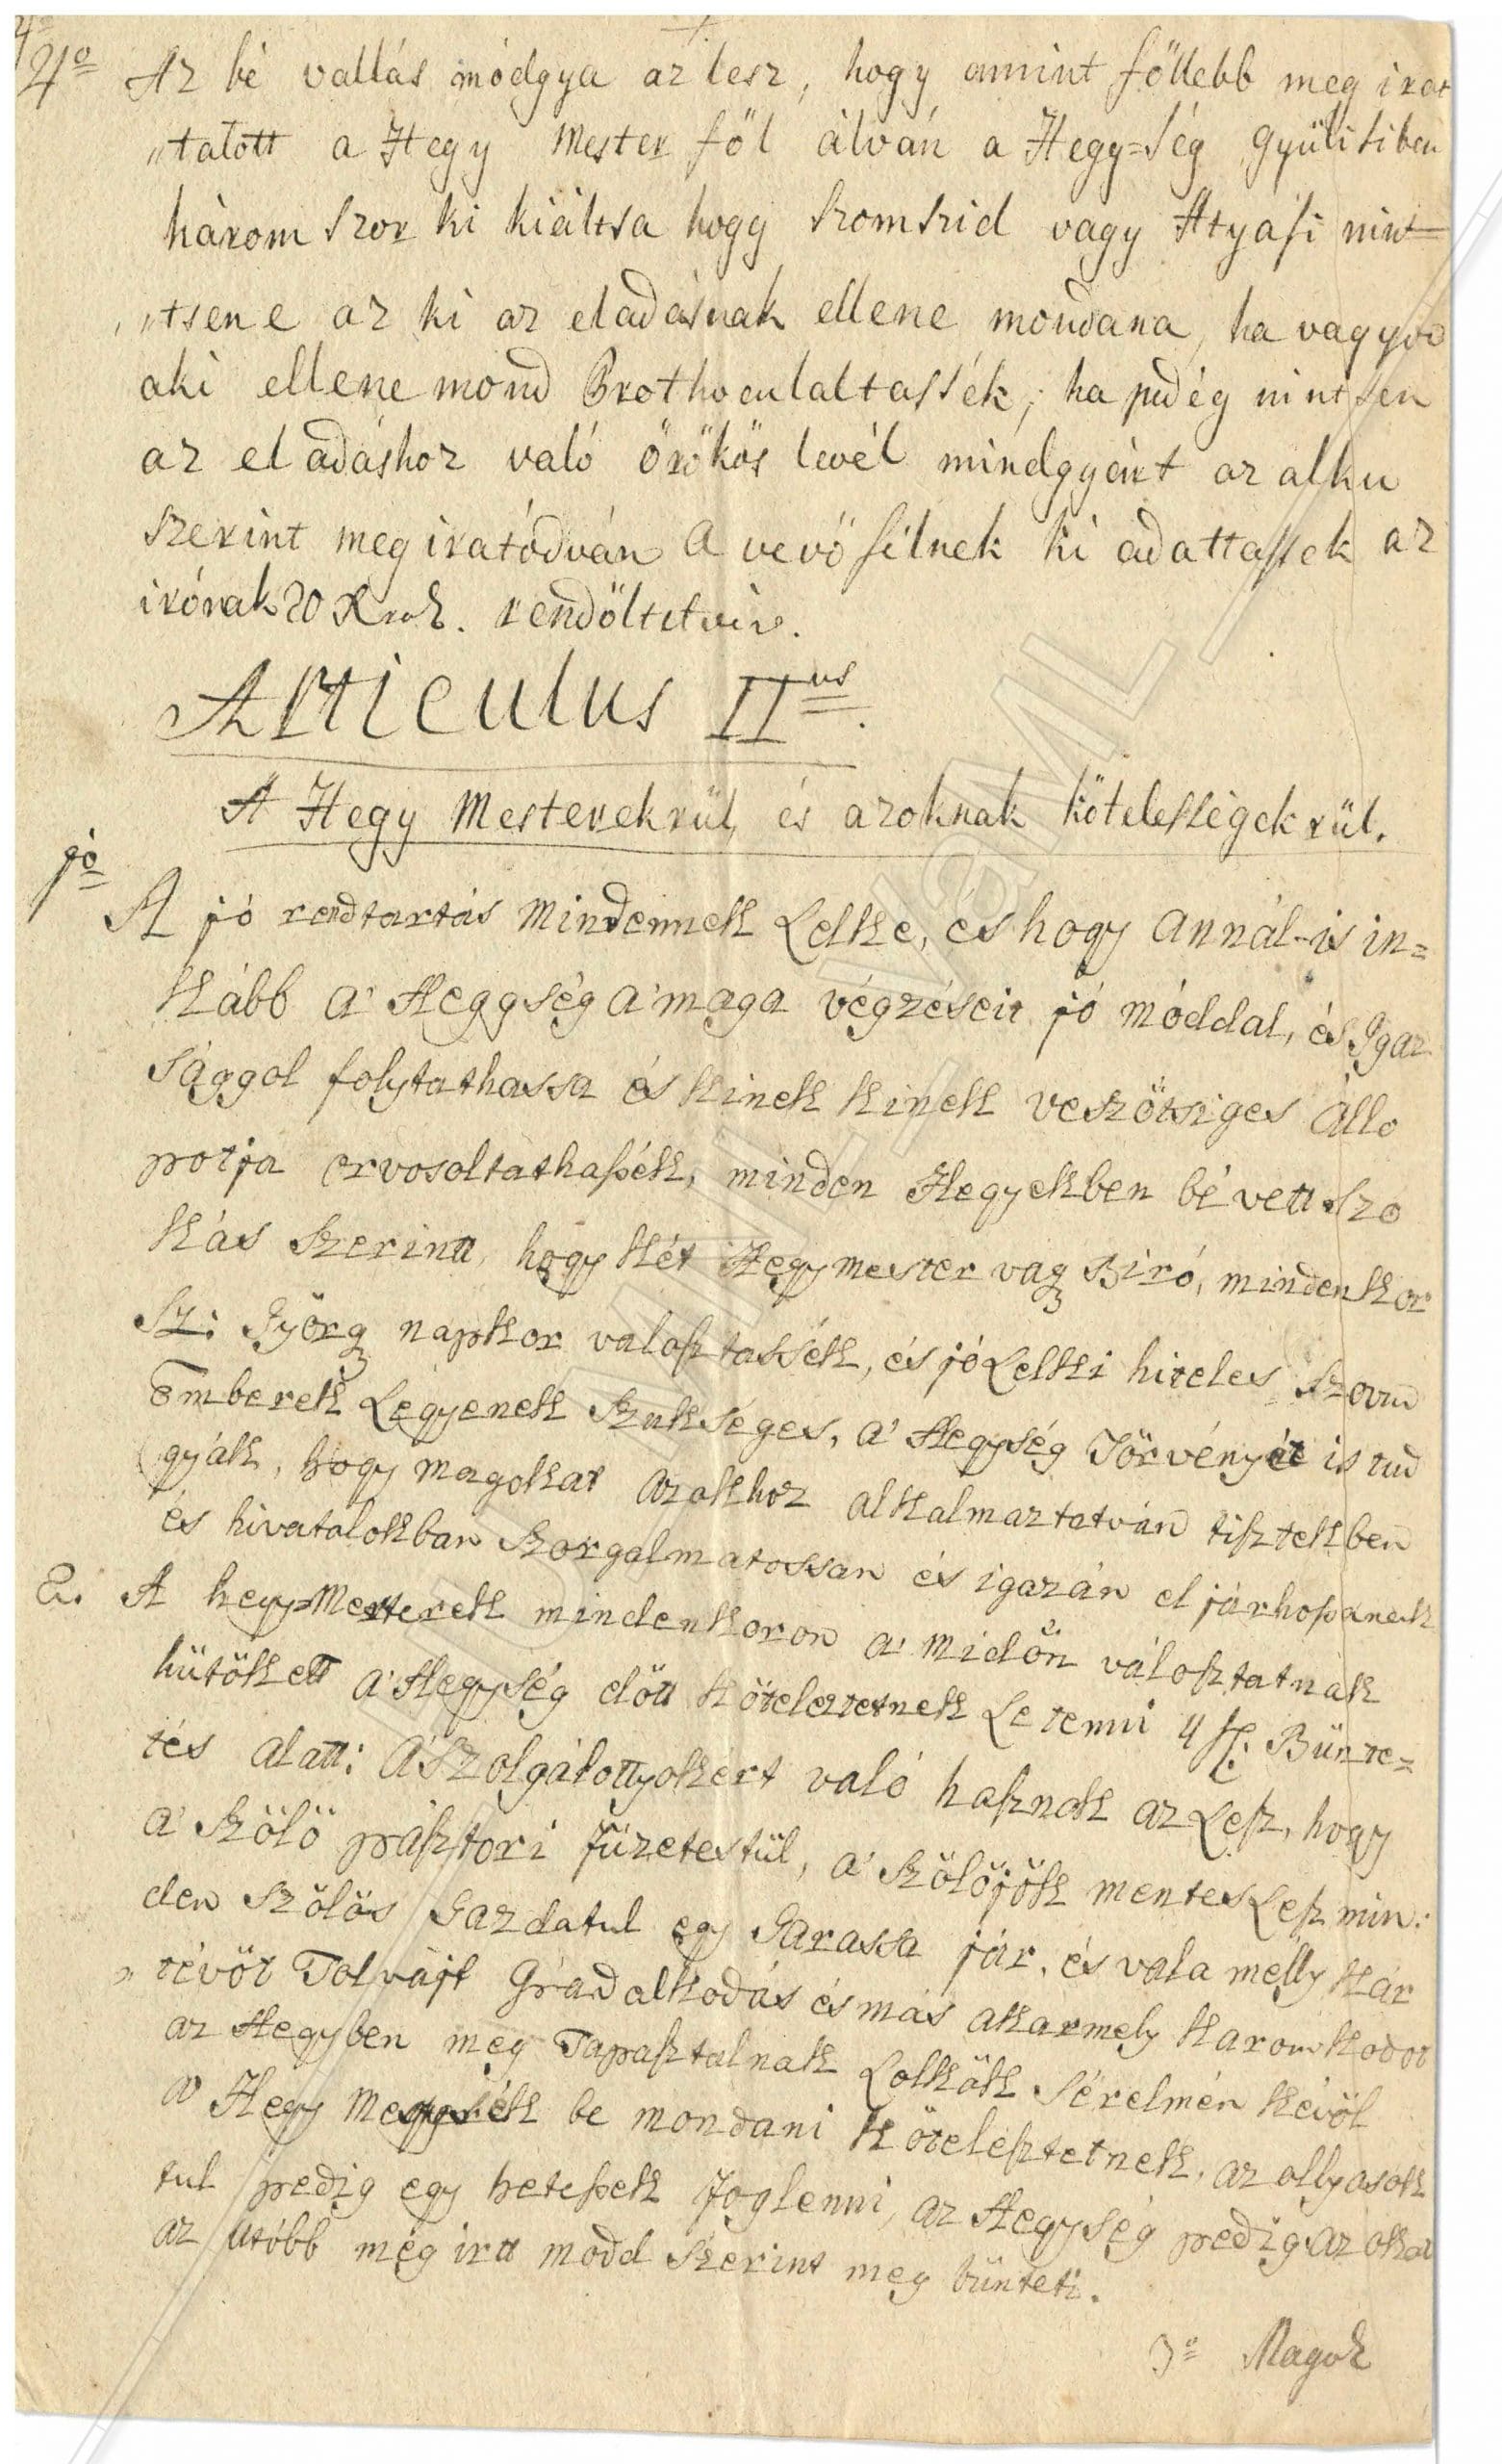 4º Az bé vallás módgya az lesz, hogy amint föllebb meg irat
„tatott a Hegy Mester föl álván a Hegy=ség gyülisiben
három szor ki kiáltsa hogy szomszid vagy Atyafi nint=
„tsene az ki az eladásnak ellene mondana, ha vagyon
aki ellene mond Prothoculaltassék, ha pedég nintsen
az el adáshoz való örökös levél mindgyárt az alku
szerint meg iratódván a vevö félnek ki adattassek az
irónak 20 Xrok. rendöltetvén.
Articulus IIus.
A Hegy Mesterekrül, és azoknak kötelességekrül.
1º
A jó rendtartás Mindennek Lelke, és hogy Annál-is in=
kább a' Heggség a' maga végzéseit jó móddal, és Igaz
sággol folytathassa és kinek kinek veszötsiges állo
potja orvosoltathassék, minden Hegyekben bé vett szo
kás szerintt, hogy két Hegymester vagy Biró, mindenkor
Sz: György napkor valosztassék, és jó Lelki hiteles szavu
Emberek Legyenek szukséges, a' Hegység Törvényét is tud
gyák, hogy magokat azokhoz alkalmaztatván tisztekben
és hivatalokban szorgalmatossan és igazán el járhossanak
2. A hegy=Mesterek mindenkoron a' midőn válosztatnak
hütökett a' Hegység elött köteleztetnek Le tenni 4 f: Bünte=
tés alatt: A' szolgálottyokért való hasznok az Lesz, hogy
a' szölö pásztori füzetestül, a' szölöjök mentes Lesz min:
den szölös Gazdatul egy Garassa jár, és vala melly kár
„tévöt Tolvajt Gradalkodás és más akarmely karomkodot
az Hegyben meg Tapasztalnak Lolkök sérelmén kévöl
a' Hegy be mondani kötelesztetnek, az ollyasok
tul pedig egy hetessek Joglenni, az Hegység pedig azokat
az utóbb még irtt modd szerint meg bünteti.
3º Magok